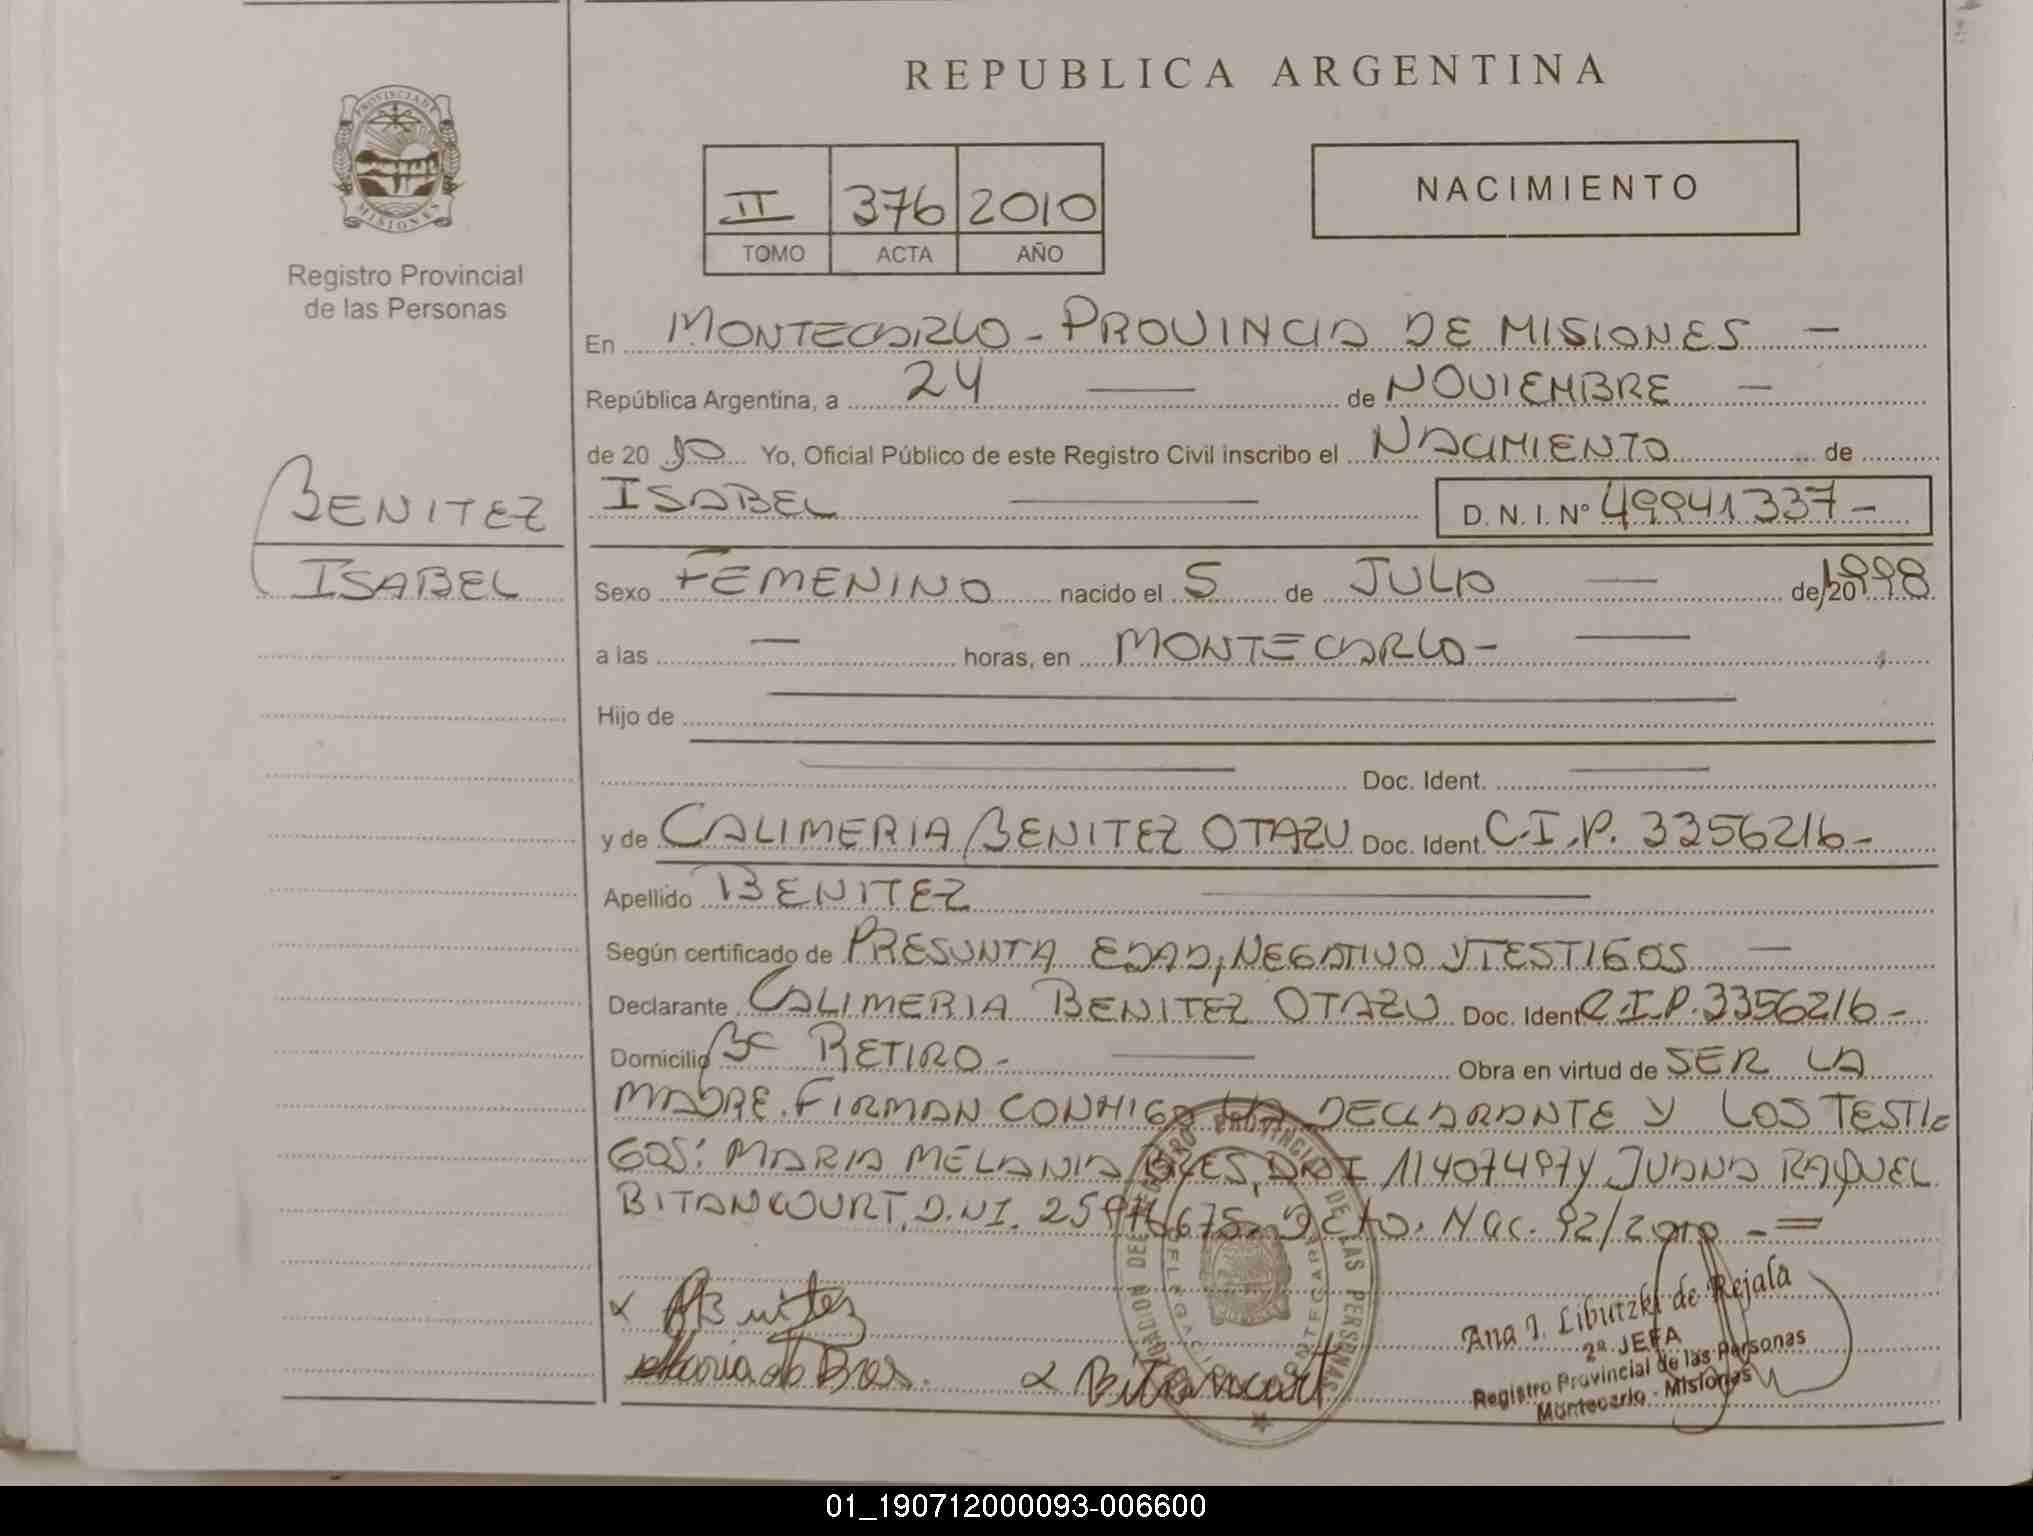 REPUBLICA ARGENTINA
PROVINCIA DE MISIONES
Registro Provincial
de las Personas
II 376 2010
TOMO ACTA AÑO
NACIMIENTO
BENITEZ
ISABEL
En MONTECARLO - PROVINCIA DE MISIONES —
República Argentina, a 24 — de NOVIEMBRE —
de 20 10 Yo, Oficial Público de este Registro Civil inscribo el NACIMIENTO de
ISABEL — D. N. I. Nº 49941337 -
Sexo FEMENINO nacido el 5 de JULIO — de/20 1998
a las — horas, en MONTECARLO - —
Hijo de —
— Doc. Ident. —
y de CALIMERIA BENITEZ OTAZU Doc. Ident C.I.P. 3356216 -
Apellido BENITEZ —
Según certificado de PRESUNTA EDAD, NEGATIVO Y TESTIGOS —
Declarante CALIMERIA BENITEZ OTAZU Doc. Ident C.I.P. 3356216 -
Domicilio Bº RETIRO - — Obra en virtud de SER LA
MADRE. FIRMAN CONMIGO LA DECLARANTE Y LOS TESTI
GOS: MARIA MELANIA DNI 11407497 Y JUANA RAQUEL
BITANCOURT, D.NI. 25976675. DCTO. NAC. 92/2010 - =
Benitez
Maria
Bitancourt
REGISTRO PROVINCIAL DE LAS PERSONAS
Ana I. Libutzki de Rejala
2ª JEFA
Registro Provincial de las Personas
Montecarlo - Misiones
01_190712000093-006600